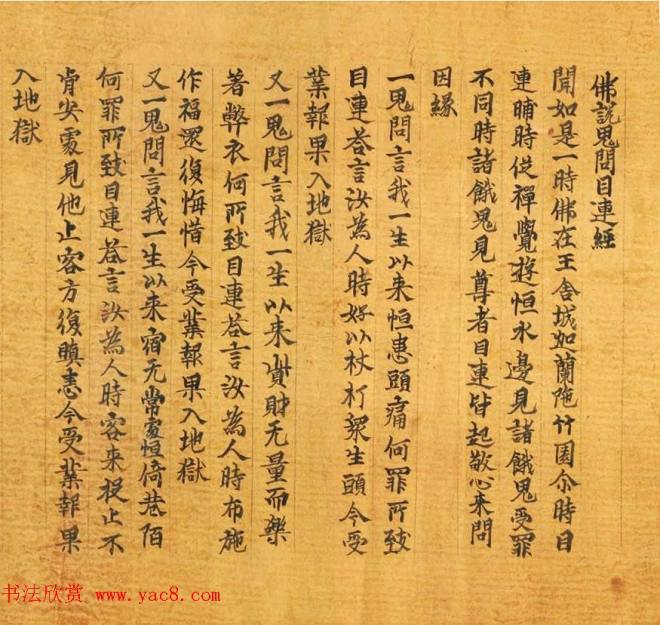 佛說鬼問目連經
聞如是一時佛在王舍城迦蘭陁竹園尒時目
連晡時從禪覺遊恒水邊見諸餓鬼受罪
不同時諸餓鬼見尊者目連皆起敬心來問
因緣
一鬼問言我一生以来恒患頭痛何罪所致
目連荅言汝為人時好以杖打衆生頭今受
業報果入地獄
又一鬼問言我一生以来資財无量而樂
著弊衣何所致目連荅言汝為人時布施
作福還復悔惜今受業報果入地獄
又一鬼問言我一生以来宿无常處恒倚巷陌
何罪所致目連荅言汝為人時客来投止不
肯安處見他止客方復瞋恚今受業報果
入地獄
书法欣赏 www.yac8.com